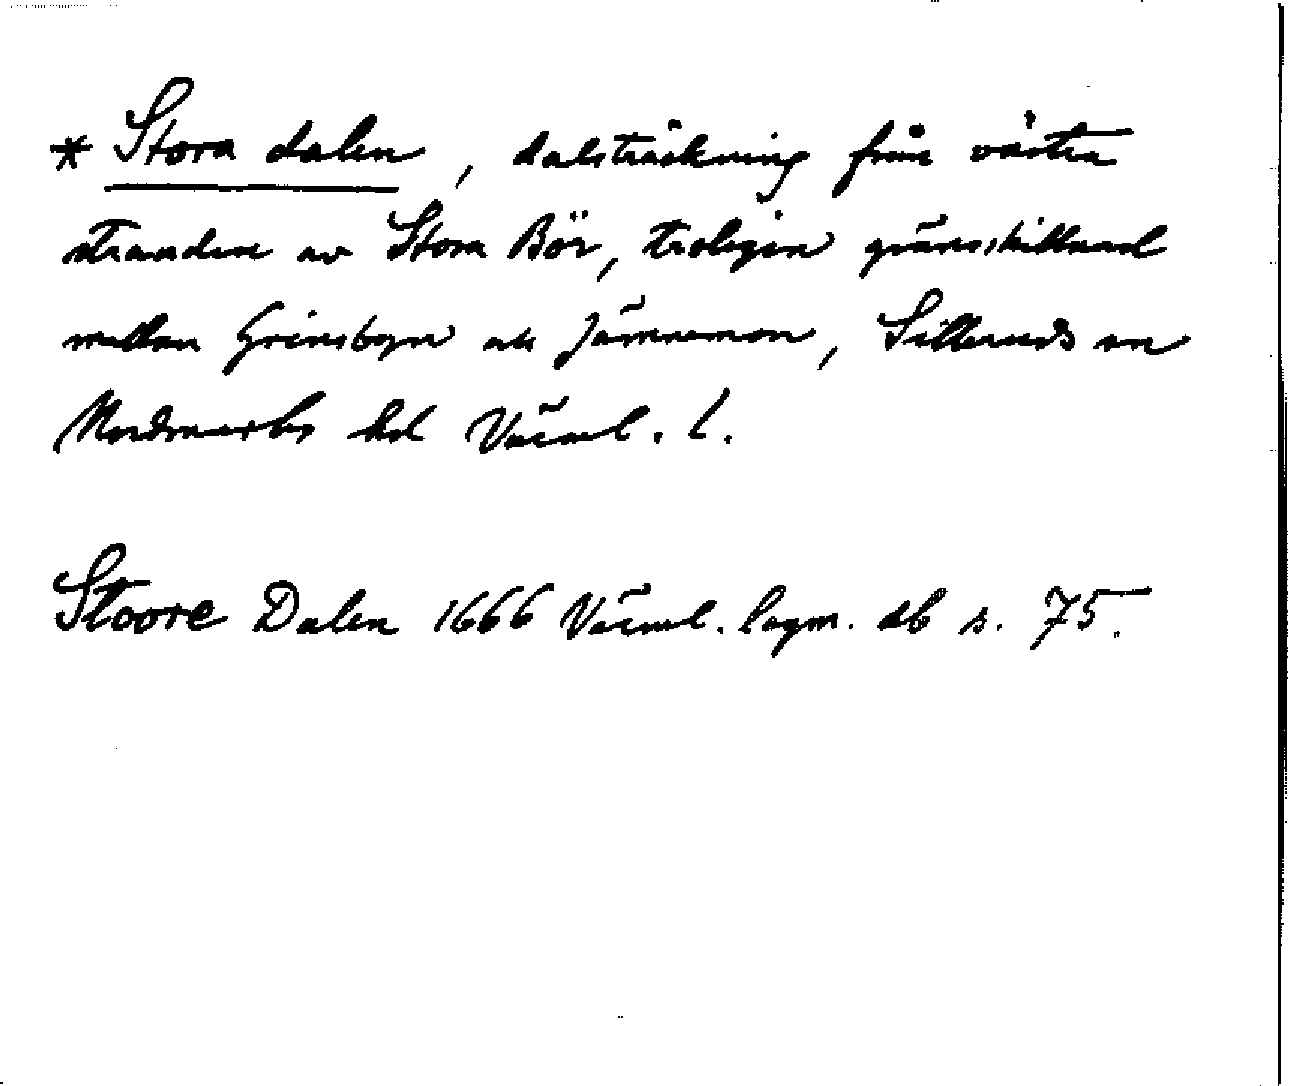 * Stora dalen, dalsträckning från västra
stranden av Stora Bör, troligen gränsskillnad
mellan Grinsbyn och Jämnemon, Sillerud sn
Nordmarks hd Värml. l.
Stoore Dalen 1666 Värml. lagm. db s. 75.